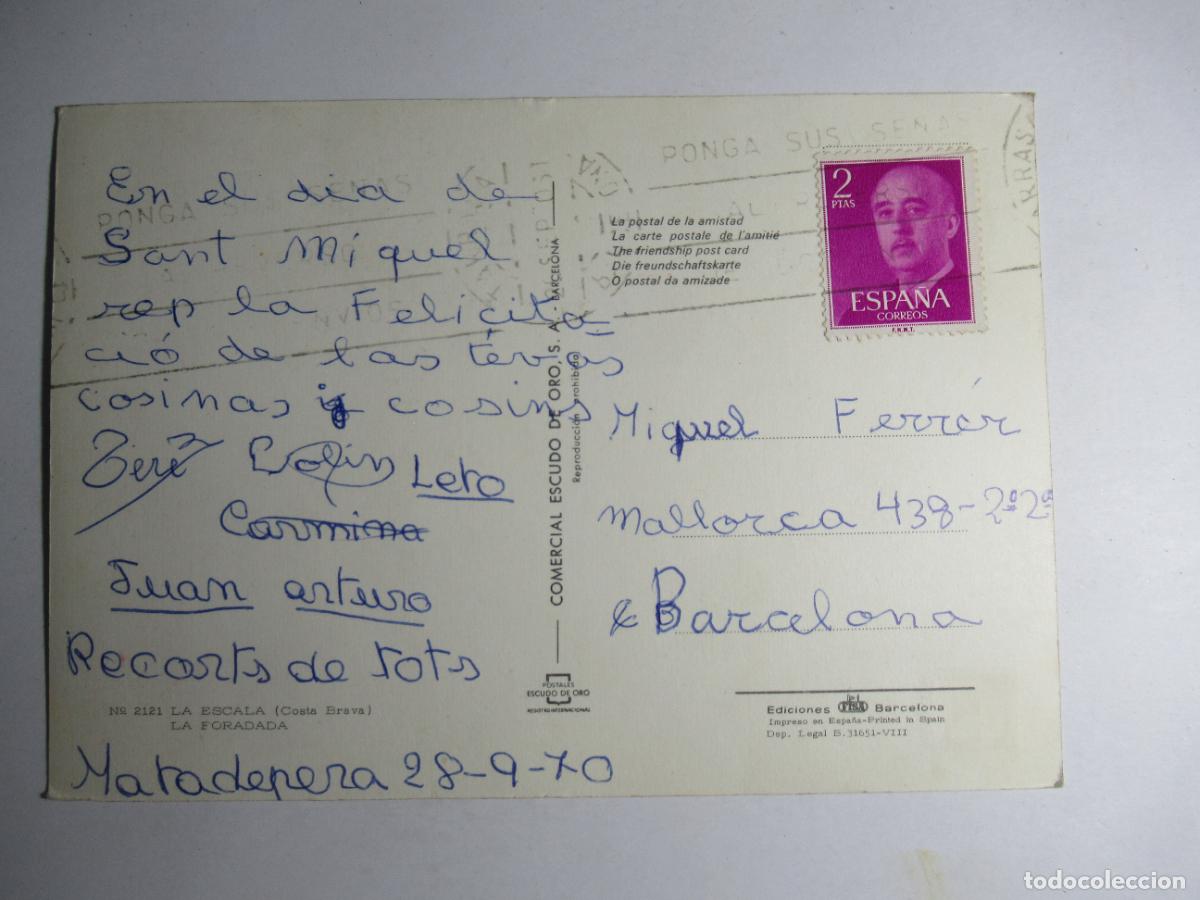 En el dia de
Sant Miquel
rep la Felicita=
ció de las tevas
cosinas i cosins
Leto
Carmina
Juan arturo
Recorts de tots
Nº 2121 LA ESCALA (Costa Brava)
LA FORADADA
Matadepera 28-9-70
COMERCIAL ESCUDO DE ORO, S. A. - BARCELONA
Reproducción prohibida
POSTALES
ESCUDO DE ORO
REGISTRO INTERNACIONAL
PONGA SUS SEÑAS
PONGA SUS SEÑAS
AL
La postal de la amistad
La carte postale de l'amitié
The friendship post card
Die freundschaftskarte
O postal da amizade
2
PTAS
ESPAÑA
CORREOS
F.N.M.T.
Miquel Ferrér
Mallorca 438-2º2ª
Barcelona
Ediciones FISA Barcelona
Impreso en España-Printed in Spain
Dep. Legal B. 31651-VIII
todocoleccion